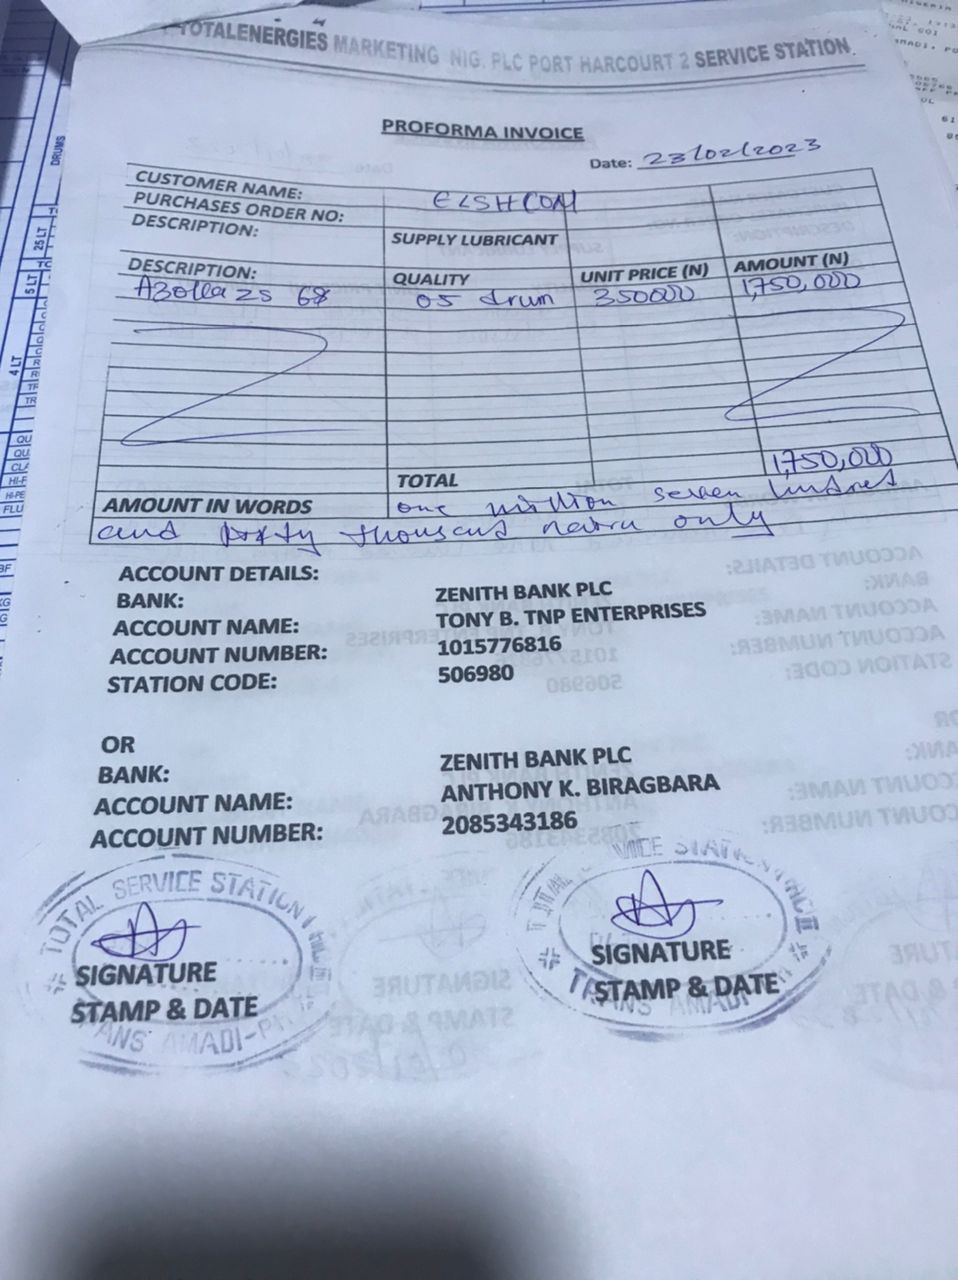 TOTALENERGIES MARKETING NIG. PLC PORT HARCOURT 2 SERVICE STATION
PROFORMA INVOICE
Date: 23/02/2023
CUSTOMER NAME: ELSHCON
PURCHASES ORDER NO:
DESCRIPTION: SUPPLY LUBRICANT
DESCRIPTION: QUALITY UNIT PRICE (N) AMOUNT (N)
Azolla zs 68 05 drum 350000 1,750,000
TOTAL 1,750,000
AMOUNT IN WORDS one million seven hundred
and fifty thousand naira only
ACCOUNT DETAILS:
BANK: ZENITH BANK PLC
ACCOUNT NAME: TONY B. TNP ENTERPRISES
ACCOUNT NUMBER: 1015776816
STATION CODE: 506980
OR
BANK: ZENITH BANK PLC
ACCOUNT NAME: ANTHONY K. BIRAGBARA
ACCOUNT NUMBER: 2085343186
TOTAL SERVICE STATION
SIGNATURE
STAMP & DATE
TRANS AMADI-PH
SIGNATURE
STAMP & DATE
TRANS AMADI
DRUMS
25 LT
5 LT
4 LT